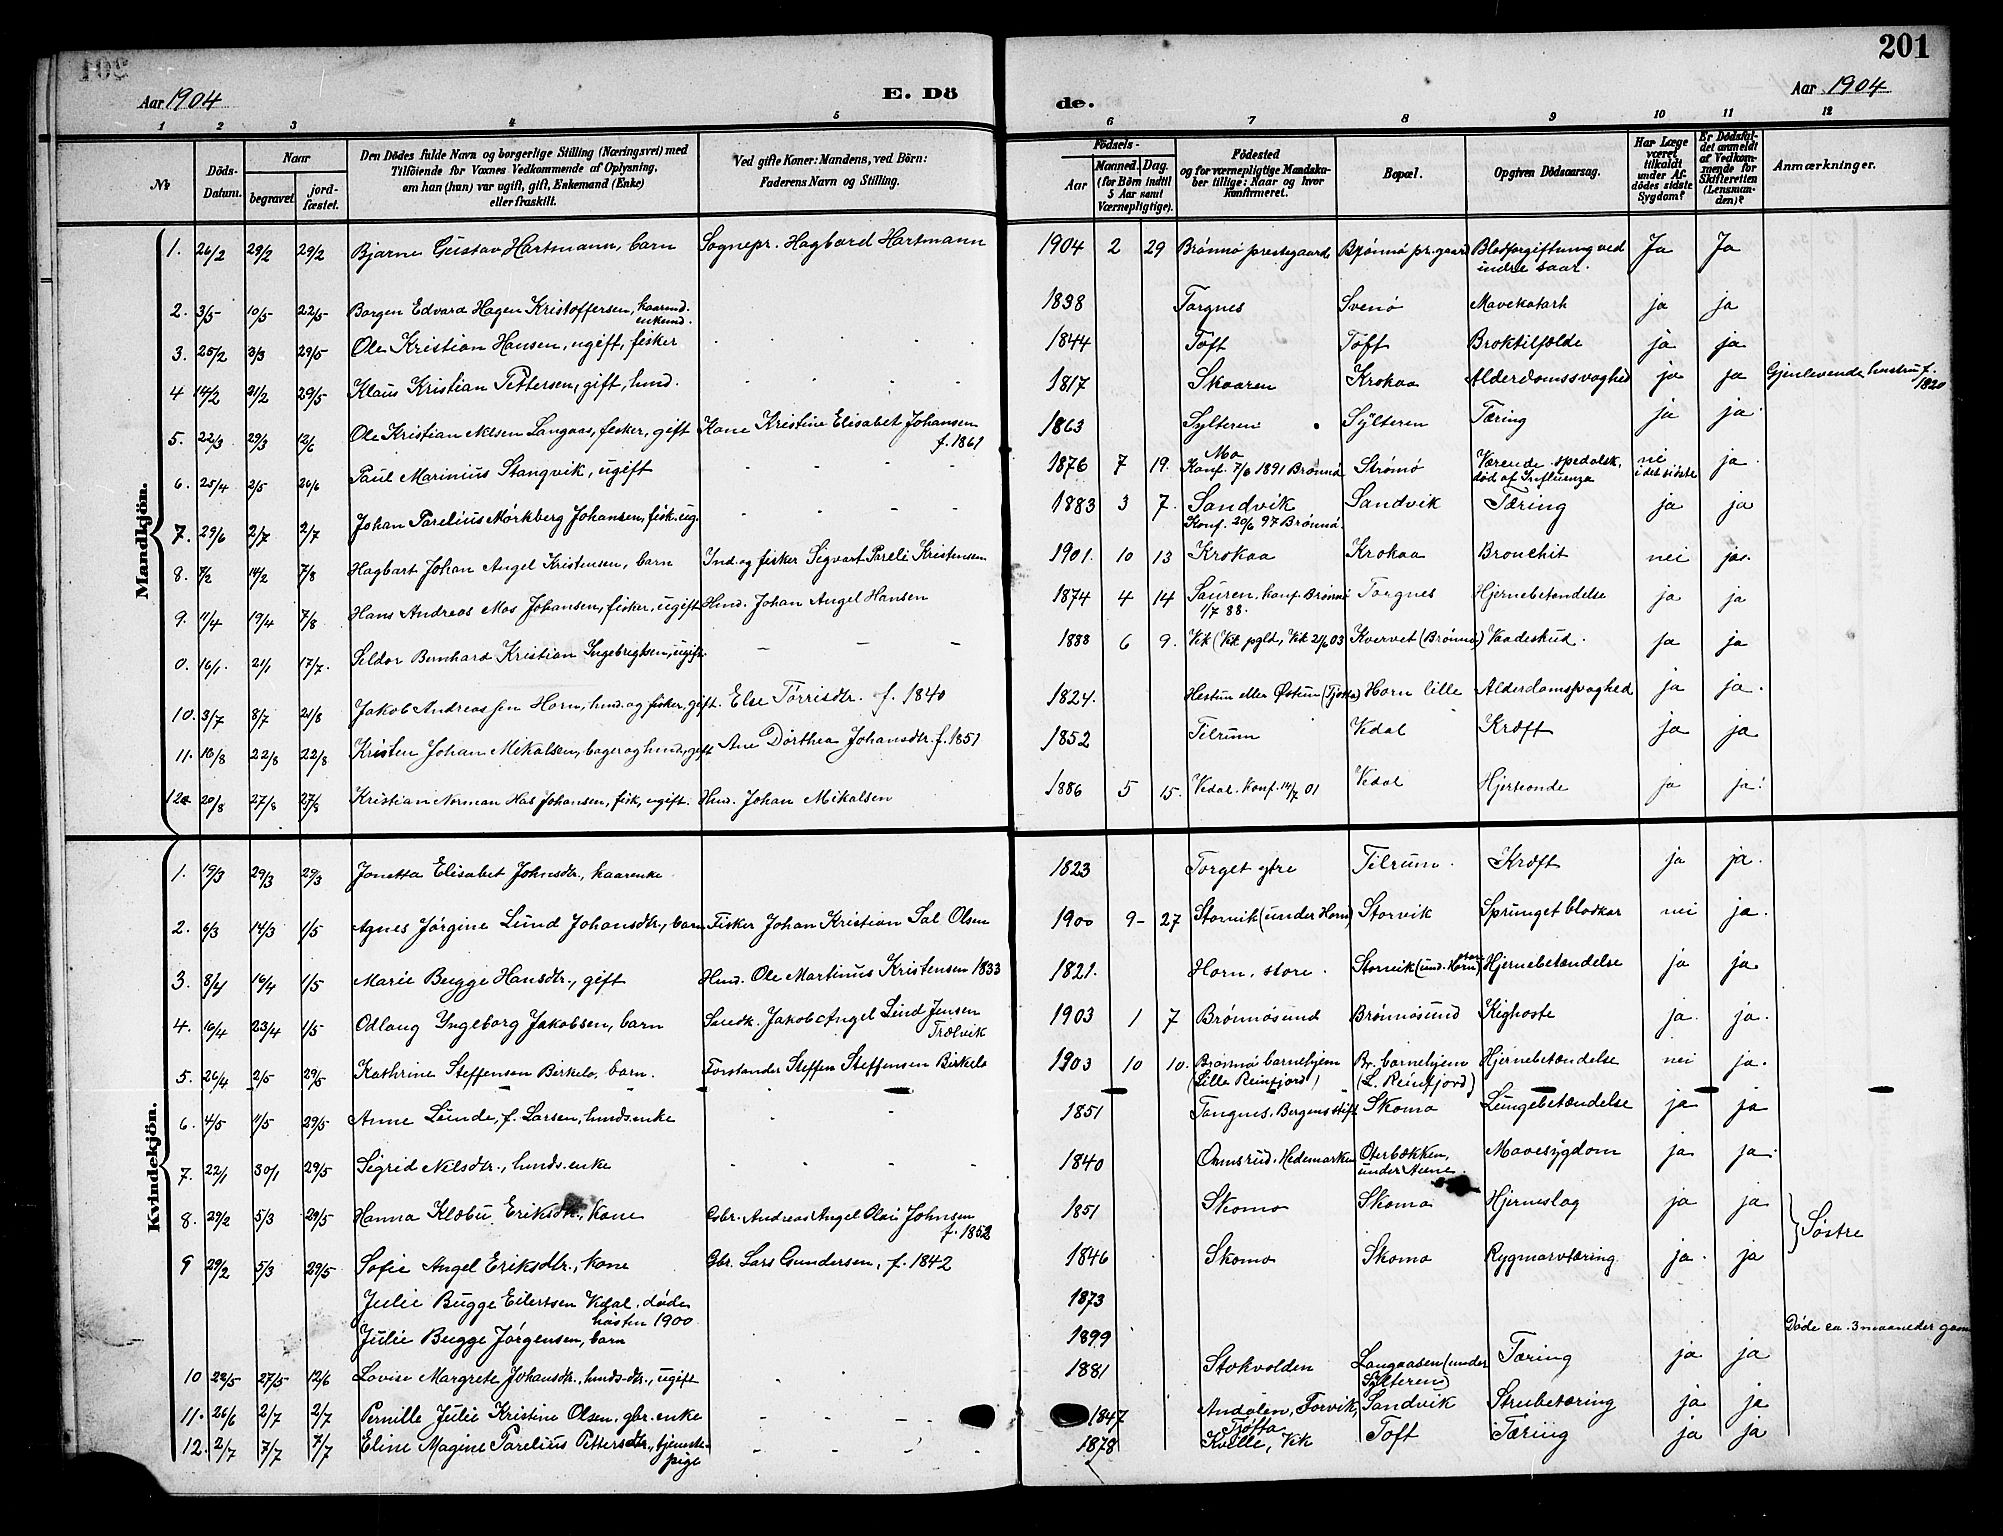 201
Aar 1904
E. Dö
de.
Aar 1904
1 2 3 4 5 6 7 8 9 10 11 12
№
Döds-Datum.
Naar
begravet.
jord-fæstet.
Den Dödes fulde Navn og borgerlige Stilling (Næringsvei) med
Tilföiende for Voxnes Vedkommende af Oplysning,
om han (hun) var ugift, gift, Enkemand (Enke)
eller fraskilt.
Ved gifte Koner: Mandens, ved Börn:
Faderens Navn og Stilling.
Födsels-
Aar
Maaned. Dag.
(for Börn indtil
5 Aar samt
Værnepligtige).
Födested
og for værnepligtige Mandska-
ber tillige: Naar og hvor
konfirmeret.
Bopæl.
Opgiven Dödsaarsag.
Har Læge
været
tilkaldt
under Af-
dödes sidste
Sygdom?
Er Dödsfal-
det anmeldt
af Vedkom-
mende for
Skifteretten
(Lensman-
den)?
Anmærkninger.
Mandkjön.
1. 26/2 29/2 29/2 Bjarne Gustav Hartmann, barn Sognepr. Hagbard Hartmann 1904 2 29 Brønnø prestegaard Brønnø pr.gaard Blodforgiftning ved Ja Ja
indre saar.
2. 3/5 10/5 22/5 Borgen Edvard Hagen Kristoffersen, kaarmd. 1838 Torgnes Svenø Mavekatarh ja ja
enkemd.
3. 25/2 3/3 29/5 Ole Kristian Hansen, ugift, fisker 1844 Toft Toft Broktilfælde ja ja
4 14/2 21/2 29/5 Klaus Kristian Pettersen, gift, hmd. 1817 Skaaren Krokaa Alderdomssvaghed ja ja Gjenlevende hustru f.
1820
5. 22/3 29/3 12/6 Ole Kristian Nilsen Langaas, fisker, gift Kone Kristine Elisabet Johansen 1863 Sylteren Sylteren Tæring ja ja.
f. 1861
6. 25/4 2/5 26/6 Paul Marinius Stangvik, ugift 1876 7 19. Mo Strømø Værende spedalsk, nei ja.
Konf. 7/6 1891 Brønnø død af Influenza i det sidste
7. 29/6 2/7 2/7 Johan Parelius Mørkberg Johansen, fisk. ug. 1883 3 7. Sandvik Sandvik Tæring ja ja
Konf. 20/6 97 Brønnø.
8. 7/2 14/2 7/8 Hagbart Johan Angel Kristensen, barn Ind. og fisker Sigvart Pareli Kristensen 1901. 10 13 Krokaa Krokaa Bronchit nei ja.
9. 11/4 19/4 7/8 Hans Andreas Mos Johansen, fisker, ugift Hmd. Johan Angel Hansen 1874 4 14 Sauren, konf. Brønnø Torgnes Hjernebetændelse ja ja
1/7 88.
0. 16/1. 21/1 17/7. Seldor Bernhard Kristian Ingebrigtsen, ugift. 1888 6 9. Vik (Vik pgld, Vik 21/6 03 Kvervet (Brønnø) Vaadeskud. ja ja
10. 3/7 8/7 21/8 Jakob Andreassen Horn, hmd. og fisker, gift. Else Tørrisdtr. f. 1840 1824. Hestun eller Østun (Tjøtta) Horn lille Alderdomssvaghed ja ja.
11. 16/8 22/8 22/8 Kristen Johan Mikalsen, bager og hmd., gift Ane Dorthea Johansdtr. f. 1851 1852 Tilrum Vedal Kræft ja ja
12 20/8 27/8 27/8 Kristian Norman Has Johansen, fisk, ugift. Hmd. Johan Mikalsen 1886 5 15. Vedal. Konf. 14/7 01 Vedal Hjerteonde ja ja.
Kvindekjön.
1. 19/3 29/3 29/3 Jonetta Elisabet Johnsdtr., kaarenke 1823 Torget ytre Tilrum. Kræft ja ja.
2. 6/3 14/3 1/5 Agnes Jørgine Lund Johansdtr., barn Fisker Johan Kristian Sal Olsen 1900 9 27 Storvik (under Horn) Storvik Sprunget blodkar nei ja.
3. 8/4 16/4 1/5 Marie Bugge Hansdtr., gift Hmd. Ole Martinus Kristensen 1833 1821. Horn, store. Storvik (und. Horn store) Hjernebetændelse ja ja.
4. 16/4 23/4 1/5 Odlaug Yngeborg Jakobsen, barn Snedk. Jakob Angel Lind Jensen 1903 1 7 Brønnøsund Brønnøsund Kighoste ja. ja.
Trælvik
5. 26/4 2/5 29/5 Kathrine Steffensen Birkelo, barn. Forstander Steffen Steffensen Birkelo 1903 10 10. Brønnø barnehjem Br. barnehjem Hjernebetændelse nei ja.
(Lille Reinfjord) (L. Reinfjord)
6. 4/5 11/5 29/5 Anne Lunde, f. Larsen, hmds. enke 1851 Tangnes. Bergens stift Skomo Lungebetændelse ja ja
7. 22/1 30/1 29/5 Sigrid Nilsdtr., hmds. enke 1840 Ommsrud. Hedemarken Oterbækken, Mavesygdom ja ja.
under Aune.
8. 29/2 5/3 29/5 Hanna Klobu Eriksdtr., kone Gbr. Andreas Angel Olai Johnsen 1851 Skomo Skomo Hjerneslag ja ja
f. 1852
Søstre
9 29/2 5/3 29/5 Sofie Angel Eriksdtr., kone Gbr. Lars Gundersen, f. 1842 1846 Skomo Skomo Rygmarvtæring ja. ja
Julie Bugge Eilertsen Vedal. døde 1873
høsten 1900
Julie Bugge Jørgensen, barn 1899 Døde ca. 3 maaneder gam
10 22/5 27/5 12/6 Lovise Margrete Johansdtr., hmds-dtr., ugift 1881 Stokvolden Langaasen (under Tæring ja ja
Sylteren)
11. 26/6 2/7 2/7 Pernille Julie Kristine Olsen, gbr. enke 1847 Andalen, Forvik, Sandvik Strubetæring ja ja
Trøfta
12. 2/7 7/7 7/7 Eline Magine Parelius Pettersdtr., tjeneste- 1878 Kvelle, Vik Toft Tæring ja ja
pige